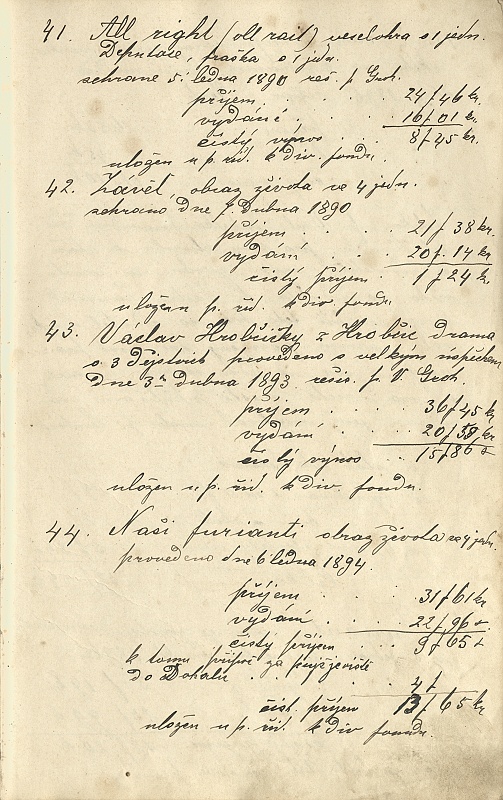 41. All right (oll rait) veselohra o 1 jedn.
Deputace, fraška o 1 jdn.
sehrane 5. ledna 1890 rež. p Groh.
příjem . . . . 24 f 46 kr.
vydání . . . 16 f 01 kr.
čistý výnos . . 8 f 45 kr.
uložen u p. řid. k div. fondu.
42. Závěť, obraz života ve 4 jedn.
sehráno Dne 7. Dubna 1890
příjem . . . . 21 f 38 kr.
vydání . . . 20 f. 14 kr.
čistý příjem . 1 f 24 k.
uložen p. řid. k div. fondu.
43. Václav Hrobčický z Hrobčic Drama
o 3 Dějstvích provedeno s velkým úspěchem
Dne 3ho Dubna 1893 režis. p. V. Groh.
příjem . . . . 36 f 45 kr.
vydání . . . 20 f 59 kr
čistý výnos . . 15 f 86 "
uložen u p. řid. k div. fondu.
44. Naši furianti obraz života ve 4 jedn.
provedeno dne 6 ledna 1894
příjem . . . 31 f 61 kr
vydání . . . 22 f 96 "
čistý příjem . . 9 f 65 "
k tomu za
do . . . 4 f
čist. příjem 13 f 65 kr
uložen u p. řid. k div fondu.